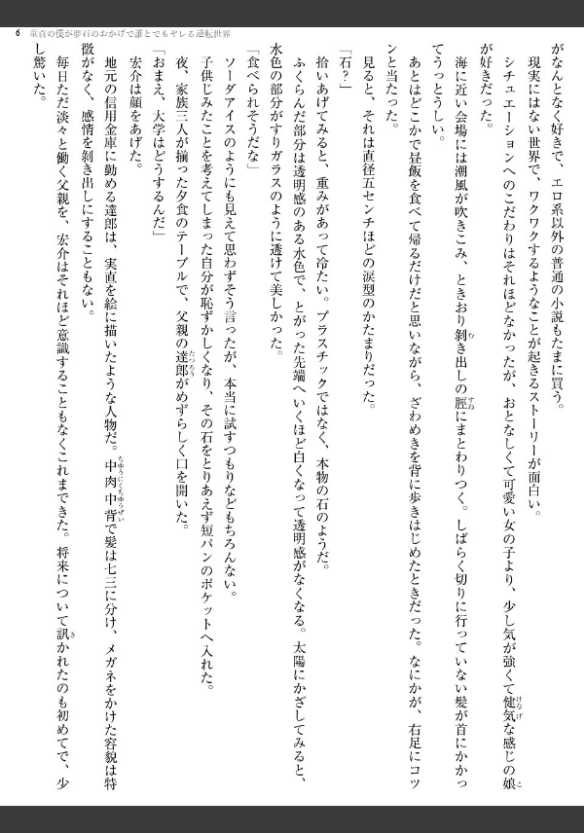 6 童貞の僕が夢石のおかげで誰とでもヤレる逆転世界
がなんとなく好きで、エロ系以外の普通の小説もたまに買う。
現実にはない世界で、ワクワクするようなことが起きるストーリーが面白い。
シチュエーションへのこだわりはそれほどなかったが、おとなしくて可愛い女の子より、少し気が強くて健気な感じの娘
が好きだった。
海に近い会場には潮風が吹きこみ、ときおり剝き出しの脛にまとわりつく。しばらく切りに行っていない髪が首にかかっ
てうっとうしい。
あとはどこかで昼飯を食べて帰るだけだと思いながら、ざわめきを背に歩きはじめたときだった。なにかが、右足にコツ
ンと当たった。
見ると、それは直径五センチほどの涙型のかたまりだった。
「石？」
拾いあげてみると、重みがあって冷たい。プラスチックではなく、本物の石のようだ。
ふくらんだ部分は透明感のある水色で、とがった先端へいくほど白くなって透明感がなくなる。太陽にかざしてみると、
水色の部分がすりガラスのように透けて美しかった。
「食べられそうだな」
ソーダアイスのようにも見えて思わずそう言ったが、本当に試すつもりなどもちろんない。
子供じみたことを考えてしまった自分が恥ずかしくなり、その石をとりあえず短パンのポケットへ入れた。
夜、家族三人が揃った夕食のテーブルで、父親の達郎がめずらしく口を開いた。
「おまえ、大学はどうするんだ」
宏介は顔をあげた。
地元の信用金庫に勤める達郎は、実直を絵に描いたような人物だ。中肉中背で髪は七三に分け、メガネをかけた容貌は特
徴がなく、感情を剝き出しにすることもない。
毎日ただ淡々と働く父親を、宏介はそれほど意識することもなくこれまできた。将来について訊かれたのも初めてで、少
し驚いた。